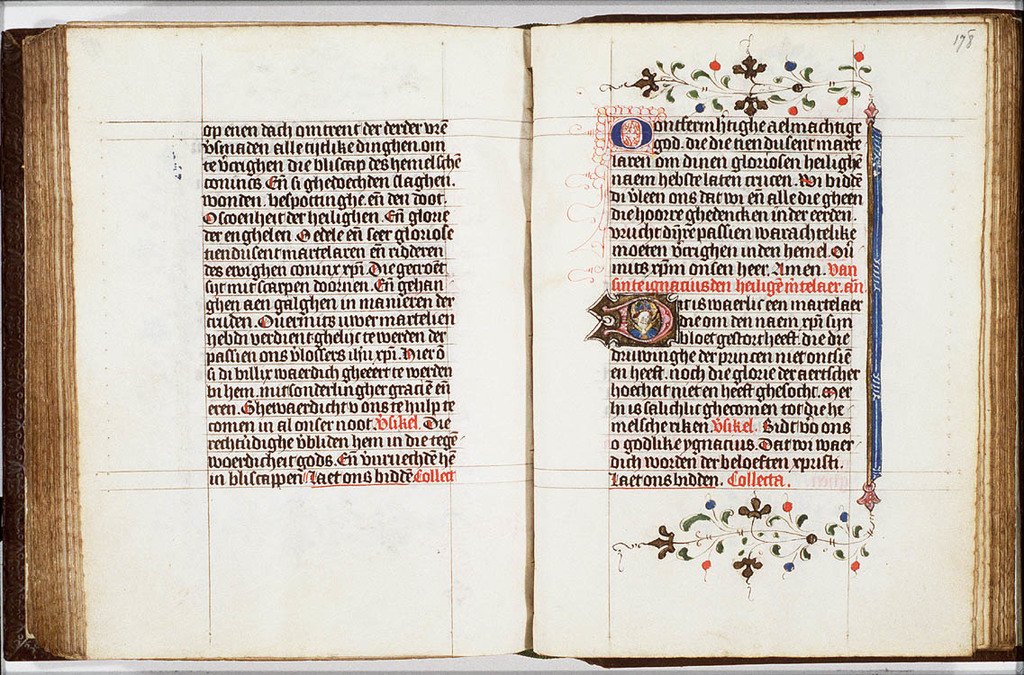 op enen dach omtrent der derder vrē
v̄smaden alle tijtlike dinghen. om
te v̄crighen die bliscap des hemelschē
conincs. En̄ si ghedoechden slaghen.
wonden. bespottinghe. en̄ den doot.
O scoenheit der heilighen. En̄ glorie
der enghelen. O edele en̄ seer gloriose
tiendusent martelaren en̄ ridderen
des ewighen conincx xp̄i. Die gecroēt
sijt mit scarpen doornen. En̄ gehan
ghen aen galghen in manieren der
crucen. Ouermits uwer martelien
hebdi verdient ghelijc te werden der
passien ons v̄lossers ih̄u xp̄i. Hier ō
si di billix waerdich gheeert te werden
bi hem. mit sonderlingher graciē en̄
eren. Ghewaerdicht v ons te hulp te
comen in al onser noot. v̄sikel. Die
rechtv̄dighe v̄bliden hem in die tegē
woerdicheit gods. En̄ v̄nruechdē hē
in bliscappen. Laet ons biddē Collect
178
Ontfermh̄tighe aelmachtige
god. die die tiendusent marte
laren om dinen gloriosen heilighē
naem hebste laten crucen. Wi biddē
di v̄leen ons dat wi en̄ alle die gheen
die hoorre ghedencken in der eerden.
vrucht dijnre passien warachtelike
moeten v̄crighen in den hemel. Ou̅
mits xp̄m onsen heer. Amen. Van
sinte ignacius den heiligē m̄telaer. an̄
Dit is waerlic een martelaer
die om den naem xp̄i sijn
bloet gestort heeft. die die
druwinghe der princen niet ontsiē
en heeft. noch die glorie der aertscher
hoecheit niet en heeft ghesocht. Mer
hi is salichlic ghecomen tot die he
melsche riken. v̄sikel. Bidt v̄o ons
o godlike ygnacius. Dat wi waer
dich worden der beloeften xp̄isti.
Laet ons bidden. Collecta.